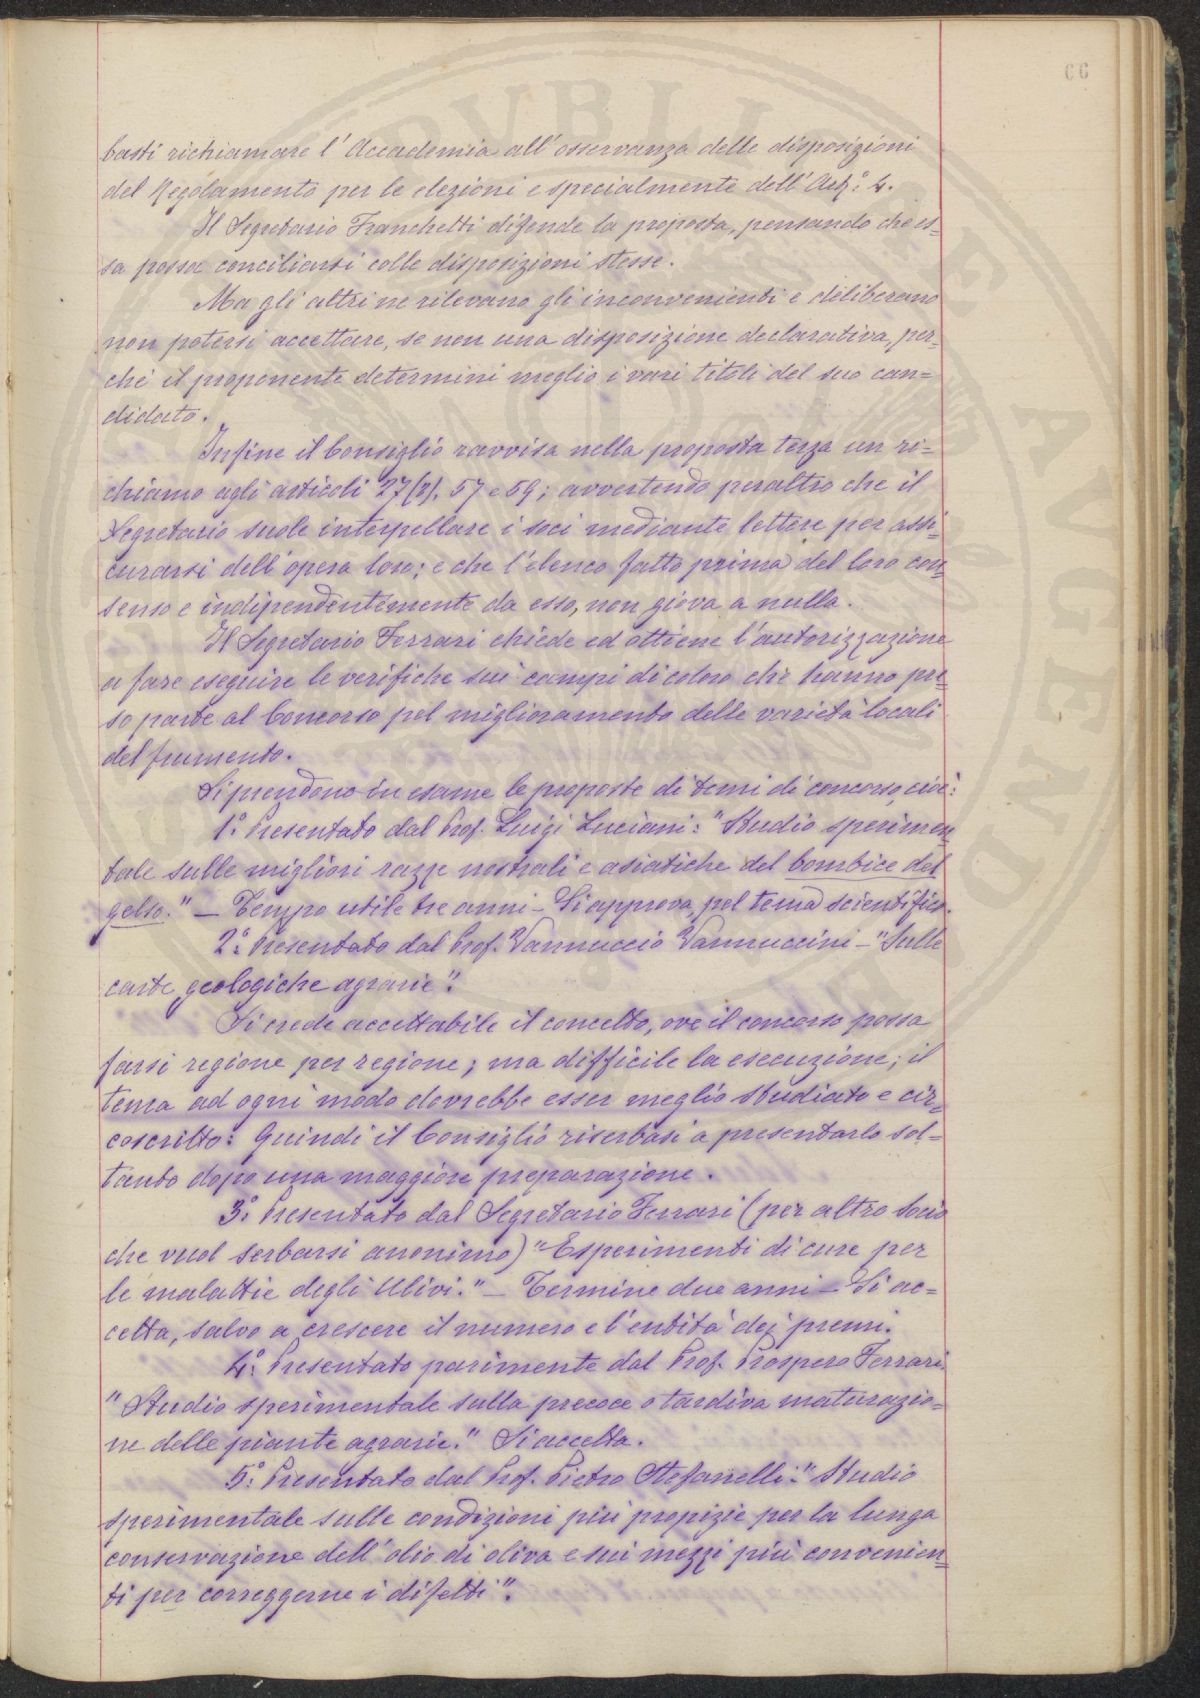 66
basti richiamare l'Accademia all'osservanza delle disposizioni
del Regolamento per le elezioni e specialmente dell'Art.° 4.
Il Segretario Franchetti difende la proposta, pensando che es=
sa possa conciliarsi colle disposizioni stesse.
Ma gli altri ne rilevano gli inconvenienti e deliberano
non potersi accettare, se non una disposizione declarativa, per=
chè il proponente determini meglio i vari titoli del suo can=
didato.
Infine il Consiglio ravvisa nella proposta terza un ri=
chiamo agli articoli 27(v), 57 e 59; avvertendo peraltro che il
Segretario suole interpellare i soci mediante lettere per assi=
curarsi dell'opera loro; e che l'elenco fatto prima del loro con=
senso e indipendentemente da esso, non giova a nulla.
Il Segretario Ferrari chiede ed ottiene l'autorizzazione
a fare eseguire le verifiche sui campi di coloro che hanno pre=
so parte al Concorso pel miglioramento delle varietà locali
del frumento.
Si prendono in esame le proposte di temi di concorso, cioè:
1.° Presentato dal Prof. Luigi Luciani: "Studio sperimen=
tale sulle migliori razze nostrali e asiatiche del bombice del
gelso." — Tempo utile tre anni — Si approva, pel tema scientifico.
2.° Presentato dal Prof. Vannuccio Vannuccini — "Sulle
carte geologiche agrarie".
Si crede accettabile il concetto, ove il concorso possa
farsi regione per regione; ma difficile la esecuzione; il
tema ad ogni modo dovrebbe esser meglio studiato e cir=
coscritto: Quindi il Consiglio riserbasi a presentarlo sol=
tanto dopo una maggiore preparazione.
3.° Presentato dal Segretario Ferrari (per altro Socio
che vuol serbarsi anonimo) "Esperimenti di cure per
le malattie degli Ulivi." — Termine due anni — Si ac=
cetta, salvo a crescere il numero e l'entità dei premi.
4.° Presentato parimente dal Prof. Prospero Ferrari
"Studio sperimentale sulla precoce o tardiva maturazio=
ne delle piante agrarie." Si accetta.
5.° Presentato dal Prof. Pietro Stefanelli: "Studio
sperimentale sulle condizioni più propizie per la lunga
conservazione dell'olio di oliva e sui mezzi più convenien=
ti per correggerne i difetti".